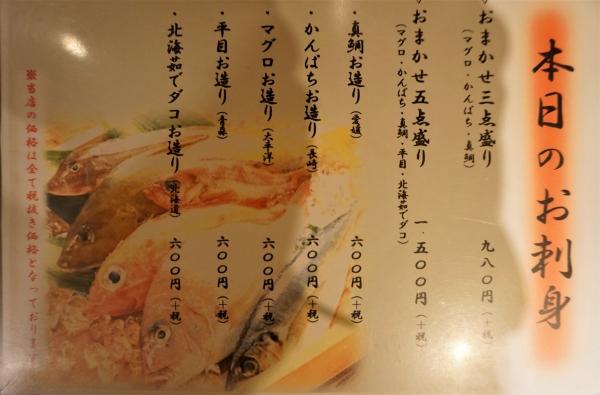 本日のお刺身
おまかせ三点盛り 九八〇円（＋税）
（マグロ・かんぱち・真鯛）
おまかせ五点盛り 一、五〇〇円（＋税）
（マグロ・かんぱち・真鯛・平目・北海茹でダコ）
・真鯛お造り（愛媛） 六〇〇円（＋税）
・かんぱちお造り（長崎） 六〇〇円（＋税）
・マグロお造り（太平洋） 六〇〇円（＋税）
・平目お造り（青森） 六〇〇円（＋税）
・北海茹でダコお造り（北海道） 六〇〇円（＋税）
※当店の価格は全て税抜き価格となっております